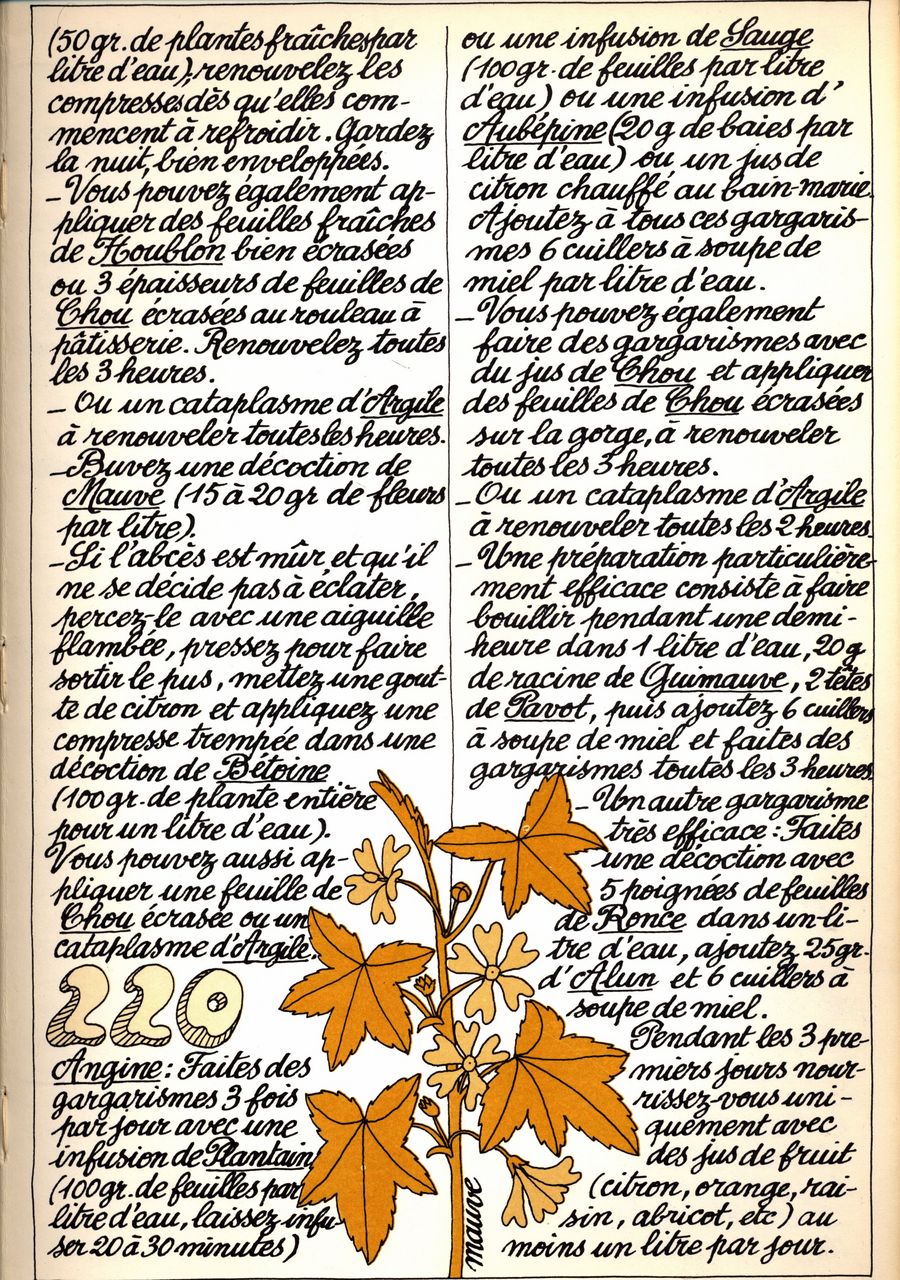 (50 gr. de plantes fraîches par
litre d'eau); renouvelez les
compresses dès qu'elles com-
mencent à refroidir. Gardez
la nuit, bien enveloppées.
- Vous pouvez également ap-
pliquer des feuilles fraîches
de Houblon bien écrasées
ou 3 épaisseurs de feuilles de
Chou écrasées au rouleau à
pâtisserie. Renouvelez toutes
les 3 heures.
- Ou un cataplasme d'Argile
à renouveler toutes les heures.
- Buvez une décoction de
Mauve (15 à 20 gr de fleurs
par litre).
- Si l'abcès est mûr et qu'il
ne se décide pas à éclater,
percez-le avec une aiguille
flambée, pressez pour faire
sortir le pus, mettez une gout-
te de citron et appliquez une
compresse trempée dans une
décoction de Bétoine
(100 gr. de plante entière
pour un litre d'eau).
Vous pouvez aussi ap-
pliquer une feuille de
Chou écrasée ou un
cataplasme d'Argile.
220
Angine: Faites des
gargarismes 3 fois
par jour avec une
infusion de Plantain
(100 gr. de feuilles par
litre d'eau, laissez infu
ser 20 à 30 minutes)
ou une infusion de Sauge
(100 gr. de feuilles par litre
d'eau) ou une infusion d'
Aubépine (20 g de baies par
litre d'eau) ou un jus de
citron chauffé au bain-marie.
Ajoutez à tous ces gargaris-
mes 6 cuillers à soupe de
miel par litre d'eau.
- Vous pouvez également
faire des gargarismes avec
du jus de Chou et appliquer
des feuilles de Chou écrasées
sur la gorge, à renouveler
toutes les 3 heures.
- Ou un cataplasme d'Argile
à renouveler toutes les 2 heures.
- Une préparation particulière-
ment efficace consiste à faire
bouillir pendant une demi-
heure dans 1 litre d'eau, 20 g
de racine de Guimauve, 2 têtes
de Pavot, puis ajoutez 6 cuillers
à soupe de miel et faites des
gargarismes toutes les 3 heures.
- Un autre gargarisme
très efficace: Faites
une décoction avec
5 poignées de feuilles
de Ronce dans un li-
tre d'eau, ajoutez 25 gr.
d'Alun et 6 cuillers à
soupe de miel.
Pendant les 3 pre-
miers jours nour-
rissez-vous uni-
quement avec
des jus de fruit
(citron, orange, rai-
sin, abricot, etc) au
moins un litre par jour.
mauve